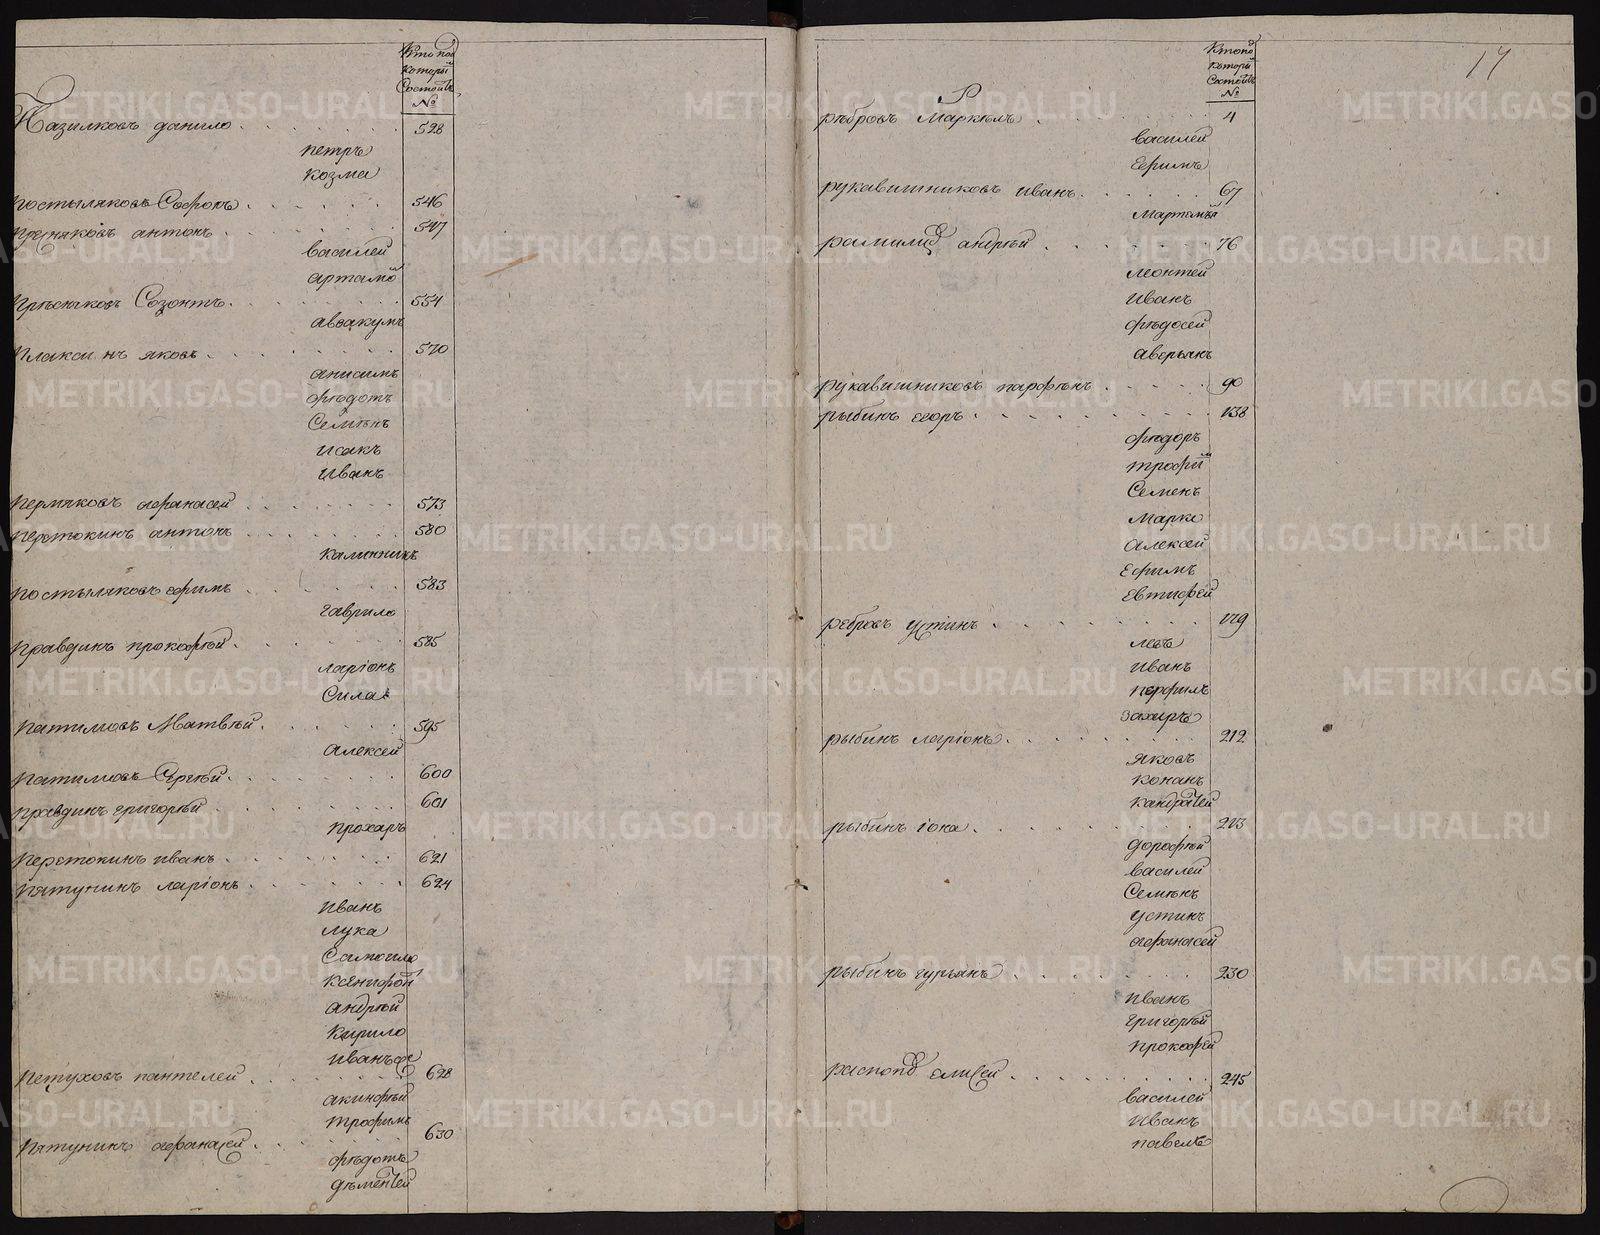 Кто под
которы
Состоитъ
№
Пазилковъ данило 528
петръ
козма
постыляковъ Софронъ 546
пресняковъ антонъ 547
василей
артамо
Пресняковъ Созонтъ 554
аввакумъ
плаксинъ яковъ 570
анисимъ
фѣдотъ
Семѣнъ
исакъ
Иванъ
пермяковъ афанасей 573
перетокинъ антонъ 580
калинникъ
постыляковъ ефимъ 583
гаврило
правдинъ прокофѣй 585
ларіонъ
Сила
патимовъ Матвѣй 595
алексей
патимовъ 600
правдинъ григорѣй 601
прохаръ
перетокинъ иванъ 621
пятунинъ ларіонъ 624
иванъ
лука
Самоило
ксенифон
андрѣй
Кирило
иванъ же
петуховъ пантелей 628
акинфѣй
трофимъ
пятунинъ афанасей 630
фѣдотъ
дѣментей
17
Кто под
которы
Состоитъ
№
Р
рѣбровъ Маркѣлъ 4
василей
Ефимъ
рукавишниковъ иванъ 67
мартемья
рамило андрѣй 76
леонтей
иванъ
фѣдосей
аверьянъ
рукавишниковъ парфѣнъ 90
рыбинъ егоръ 138
фѣдоръ
трофим
Семенъ
марко
алексей
Ефимъ
Евтифей
ребровъ устинъ 179
левъ
иванъ
перфилъ
захаръ
рыбинъ ларіонъ 212
яковъ
кононъ
кандратей
рыбинъ іона 213
дорофѣй
василей
Семѣнъ
устинъ
афонасей
рыбинъ гурьянъ 230
иванъ
григорѣй
прокофей
распопо елисей 245
василей
иванъ
павелъ
METRIKI.GASO-URAL.RU